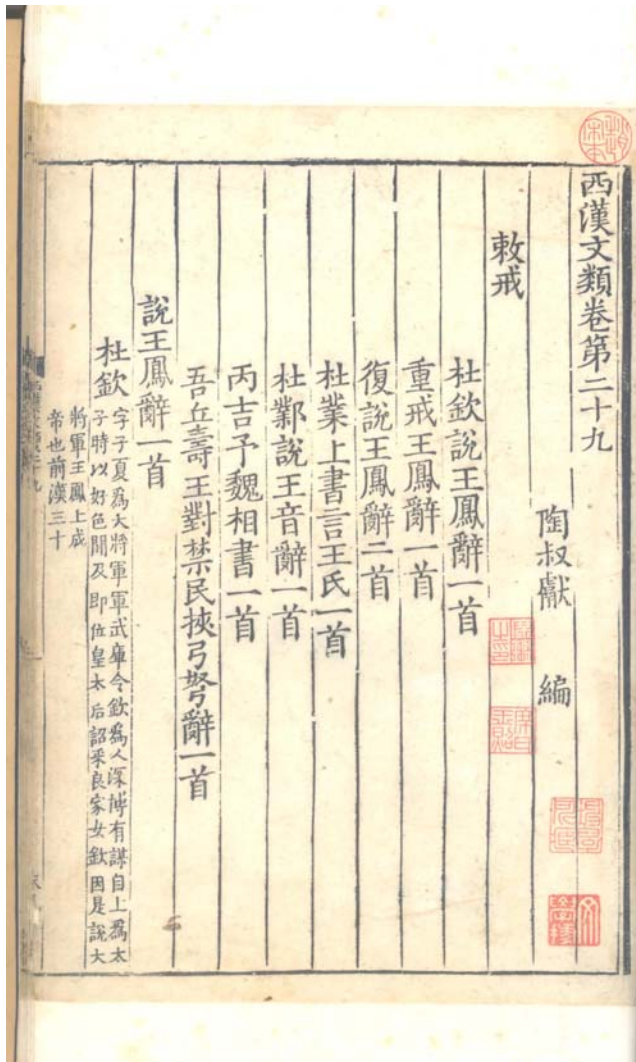 西漢文類卷第二十九
陶叔獻 編
敕戒
杜欽說王鳳辭一首
重戒王鳳辭一首
復說王鳳辭二首
杜業上書言王氏一首
杜鄴說王音辭一首
丙吉予魏相書一首
吾丘壽王對禁民挾弓弩辭一首
說王鳳辭一首
杜欽
字子夏為大將軍軍武庫令欽為人深博有謀自上為太
子時以好色聞及即位皇太后詔采良家女欽因是說大
將軍王鳳上成
帝也前漢三十